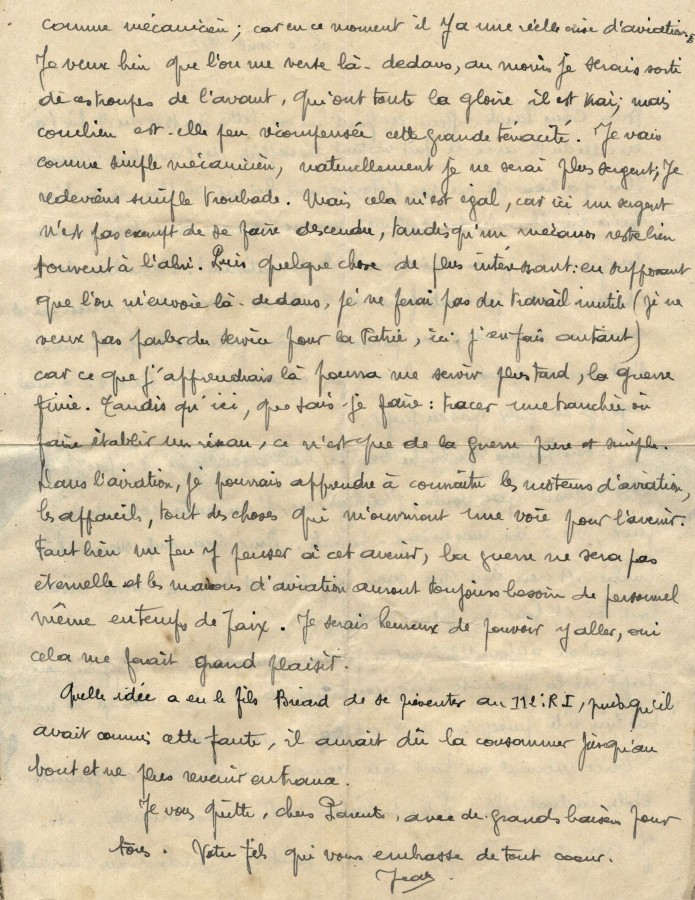 comme mécanicien ; car en ce moment il y a une réelle crise d'aviation.
Je veux bien que l'on me verse là-dedans, au moins je serais sorti
de ces troupes de l'avant, qui ont toute la gloire il est vrai ; mais
combien est-elle peu récompensée cette grande ténacité. Je vais
comme simple mécanicien, naturellement je ne serai plus sergent ; Je
redeviens simple troubade. Mais cela m'est égal, car ici un sergent
n'est pas exempt de se faire descendre, tandis qu'un mécanos reste bien
souvent à l'abri. Puis quelque chose de plus intéressant : en supposant
que l'on m'envoie là-dedans, je ne ferai pas du travail inutile (je ne
veux pas parler du service pour la Patrie, ici j'en fais autant)
car ce que j'apprendrais là pourra me servir plus tard, la guerre
finie. Tandis qu'ici, que sais-je faire : tracer une tranchée ou
faire établir un réseau, ce n'est que de la guerre pure et simple.
Dans l'aviation, je pourrais apprendre à connaître les moteurs d'aviation,
les appareils, tout des choses qui m'ouvriront une voie pour l'avenir.
Faut bien un peu y penser à cet avenir, la guerre ne sera pas
éternelle et les maisons d'aviation auront toujours besoin de personnel
même en temps de paix. Je serais heureux de pouvoir y aller, oui
cela me ferait grand plaisir.
Quelle idée a eu le fils Bréard de se présenter au 112e R.I, puisqu'il
avait commis cette faute, il aurait dû la consommer jusqu'au
bout et ne plus revenir en France.
Je vous quitte, chers Parents, avec de grands baisers pour
tous. Votre fils qui vous embrasse de tout coeur.
Jean.